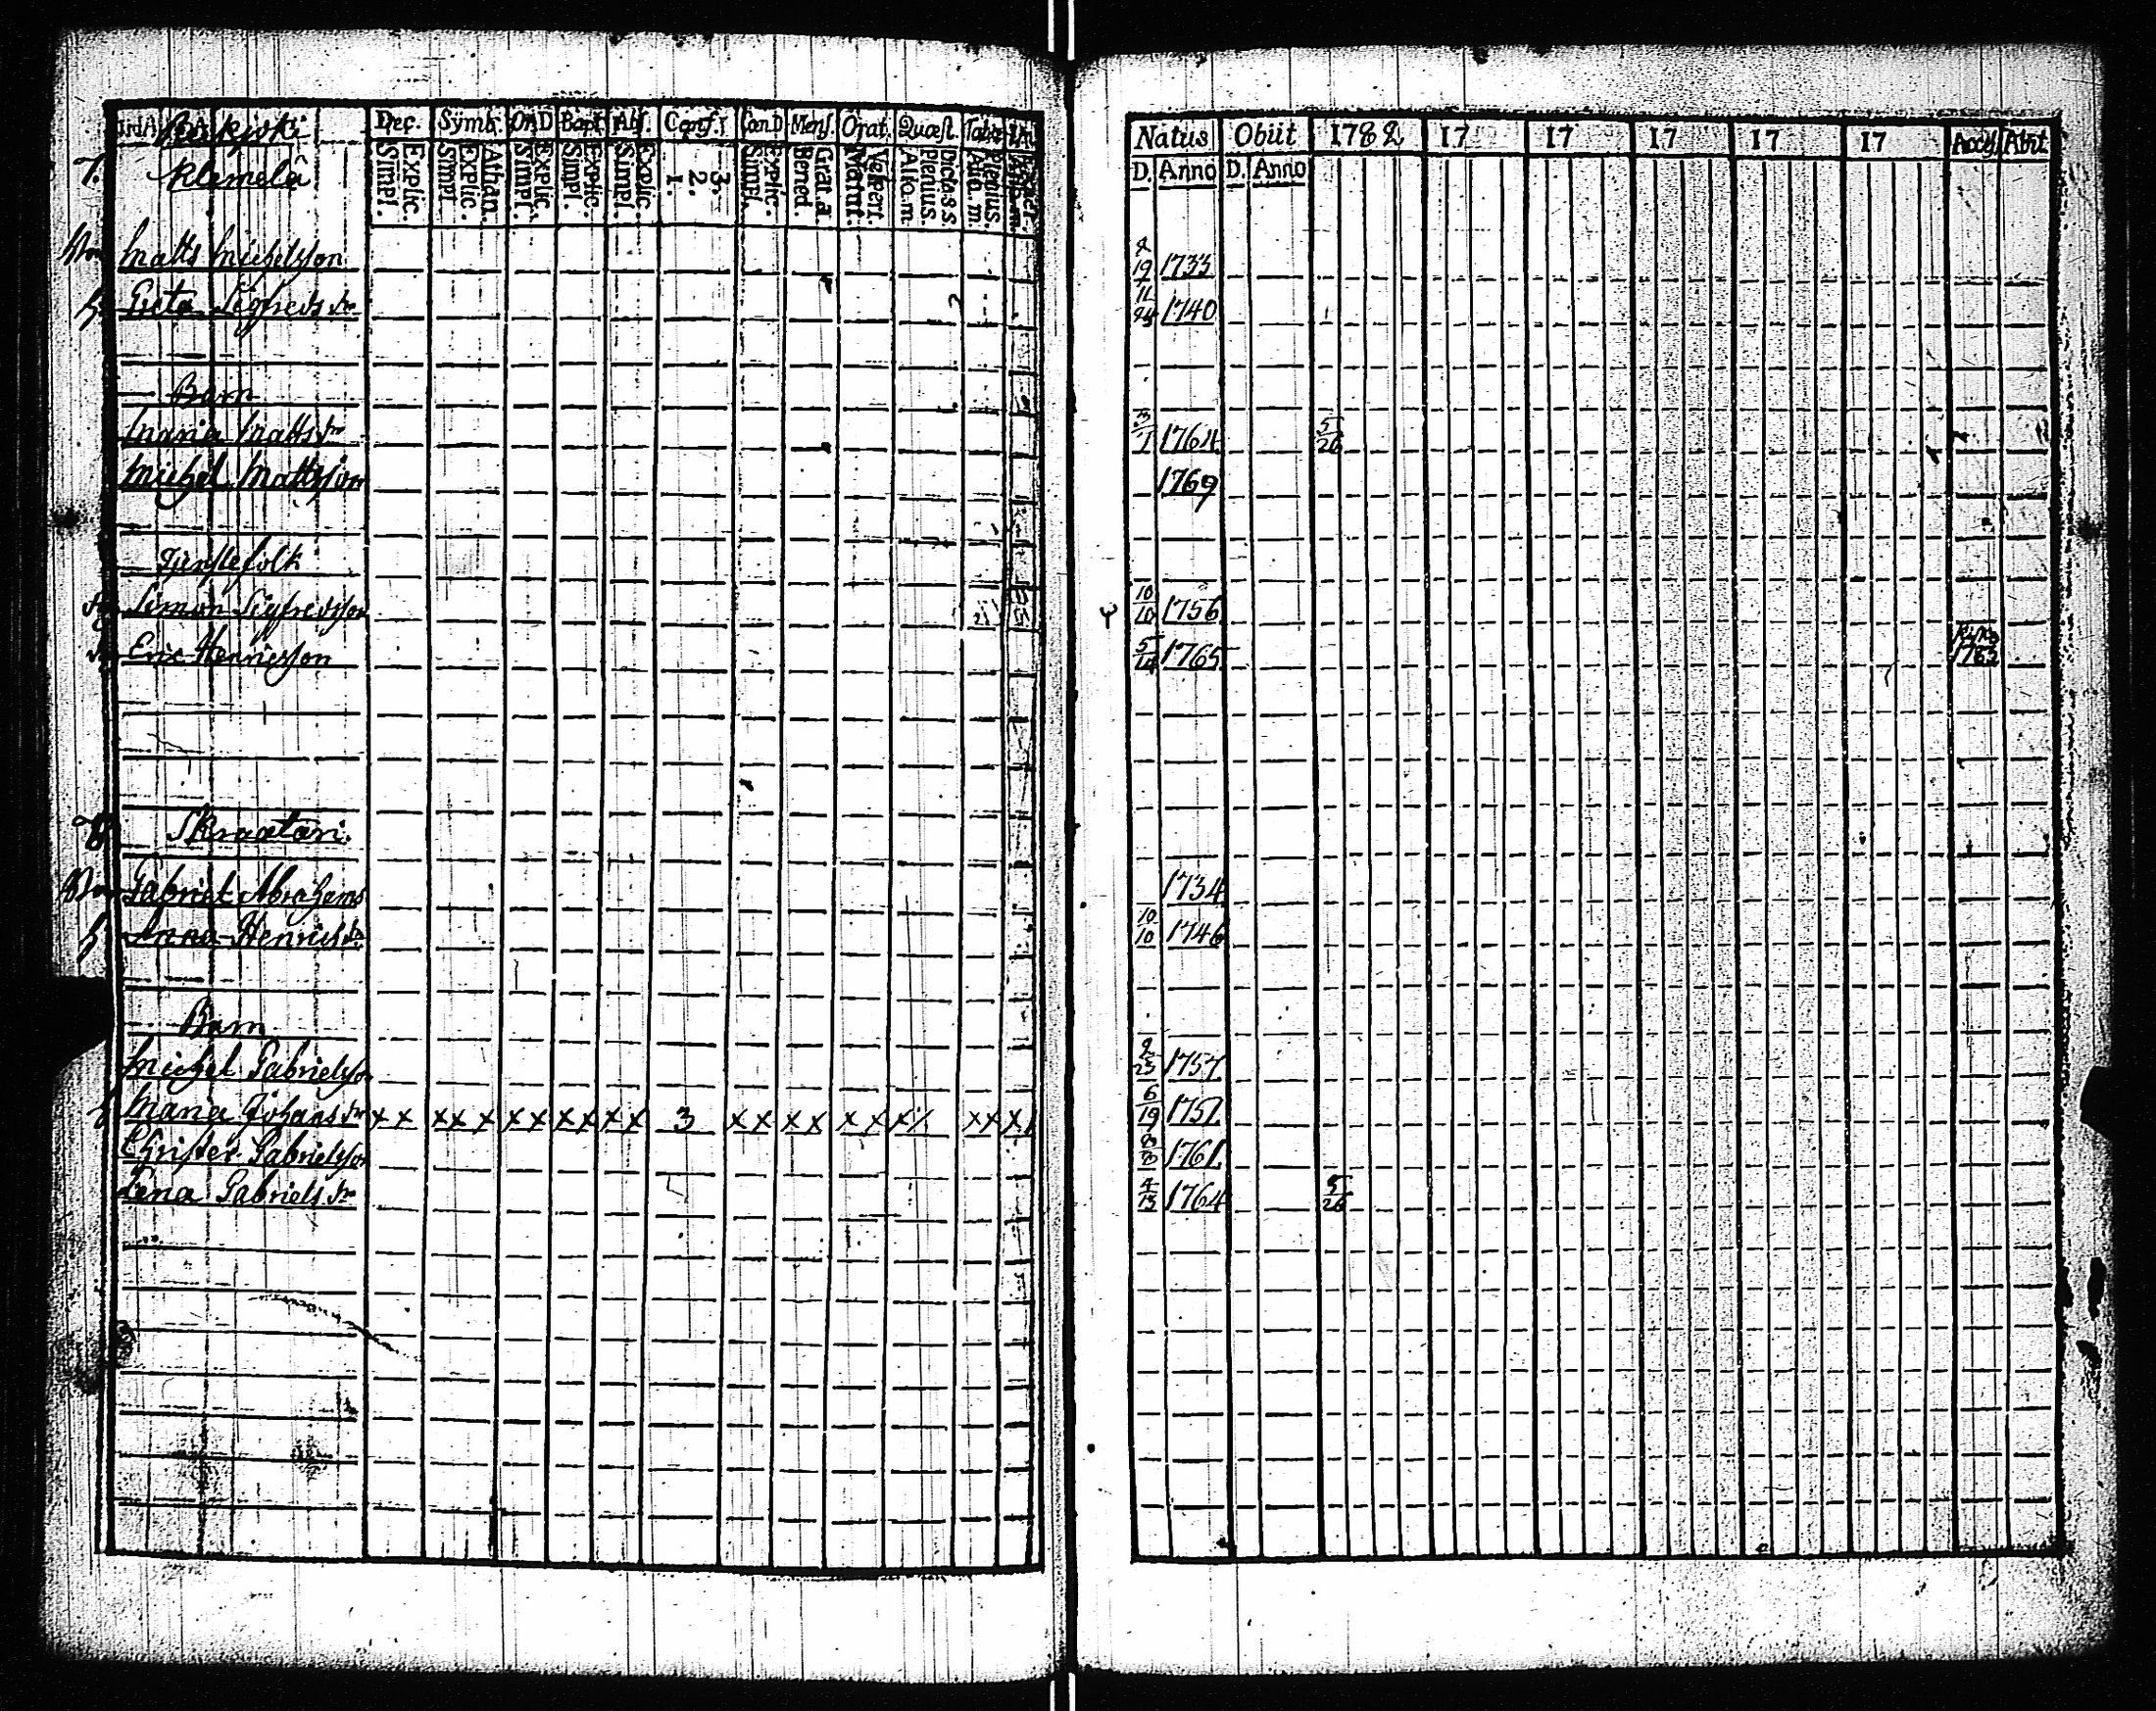 Dec. Symb. Or.D Bapt. Abs. Conf. Cœn.D Mens. Orat. Quæst. Tabæ
Simpl. Explic. Simpl Explic. Athan. Simpl. Explic. Simpl. Explic. Simpl. Explic. 1. 2. 3. Simpl. Explic. Bened. Grat. a. Matut. Vesbert. Alio. m. Plenius. Dicta s s. Alio. m. Plenius.
7. Klemelä
Matts Michelsson
h. Greta Sigfreds dr
Barn
Maria Matts dr
Michel Mattsson
Tjenstefolk
Simon Sigfredsson
Eric Henricsson
8 Skraatari.
Gabriel Abrahams
h Anna Henrics dr
Barn
Michel Gabrielsson
h Maria Johans dr x x x x x x x x x x x 3 x x x x x x x x x x x
Christer Gabrielsson
Lena Gabriels dr
Natus Obiit 1782 17 17 17 17 17 Access Abiit
D. Anno D. Anno
19 1733
11 24 1740
3 1 1764 5 26
1769
10 10 1756
5 14 1765 1783
1734
10 10 1746
9 25 1757
6 19 1757
8 1761
4 13 1764 5 26